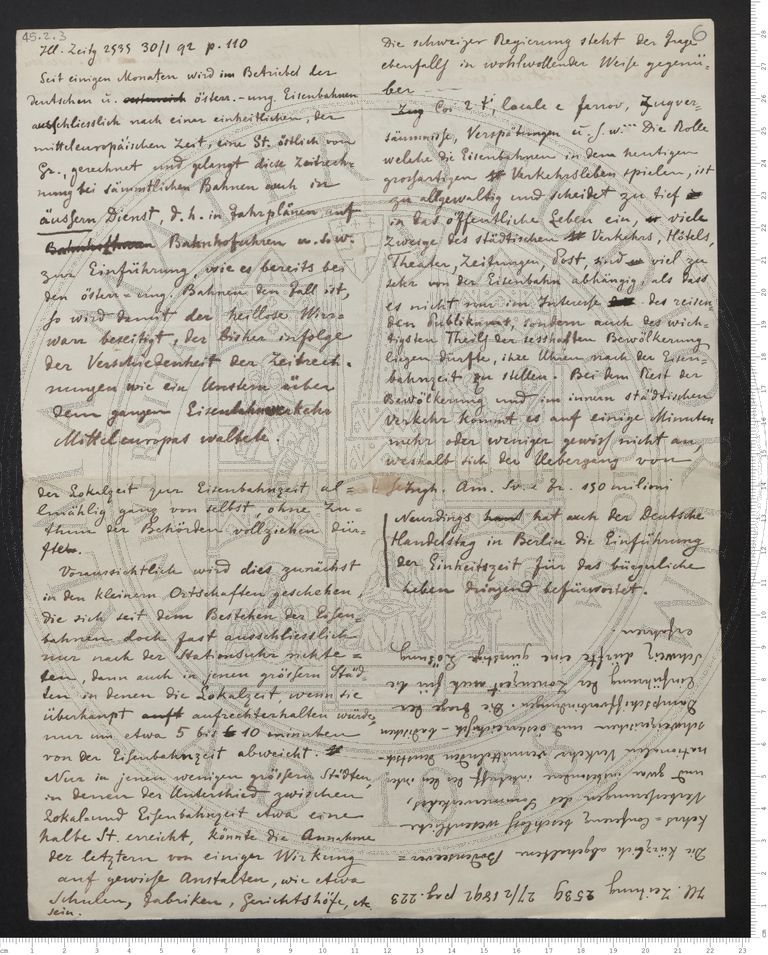 45.2.3
6
Ill. Zeitg 2535 30/1 92 p. 110
Seit einigen Monaten wird im Betriebe der
deutschen u. österr.-ung. Eisenbahnen
ausschliesslich nach einer einheitlichen, der
mitteleuropäischen Zeit, eine St. östlich von
Gr., gerechnet und gelangt diese Zeitrech-
nung bei sämmtlichen Bahnen auch im
äussern Dienst, d. h. in Fahrplänen auf
Bahnhofuhren u. s. w.
zur Einführung, wie es bereits bei
den österr-ung. Bahnen den Fall ist,
so wird damit der heillose Wirr-
warr beseitigt, der bisher infolge
der Verschiedenheit der Zeitrech-
nungen wie ein Unstern über
dem ganzen Eisenbahnverkehr
Mitteleuropas waltete.
der Lokalzeit zur Eisenbahnzeit al-
lmählig ganz von selbst, ohne Zu-
thun der Behörden vollziehen dür-
fte.
Voraussichtlich wird dies zunächst
in den kleinern Ortschaften geschehen,
die sich seit dem Bestehen der Eisen-
bahnen doch fast ausschliesslich
nur nach der Stationsuhr richte-
ten, dann auch in jenen grössern Städ-
ten in denen die Lokalzeit, wenn sie
überhaupt aufrechterhalten würde,
nur um etwa 5 bis 10 minuten
von der Eisenbahnzeit abweicht.
Nur in jenen wenigen grössern Städten,
in denen der Unterschied zwischen
Lokal und Eisenbahnzeit etwa eine
halbe St. erreicht, könnte die Annahme
der letztern von einiger Wirkung
auf gewisse Anstalten, wie etwa
Schulen, Fabriken, Gerichtshöfe, etc
sein.
Die schweizer Regierung steht der Frage
ebenfalls in wohlwollender Weise gegenü-
ber
locale e ferrov, Zugver-
säumnisse, Verspätungen u. s. w. Die Rolle
welche die Eisenbahnen in dem heutigen
grossartigen Verkehrsleben spielen, ist
zu allgewaltig und scheidet zu tief
in das öffentliche Leben ein, viele
Zweige des städtischen Verkehrs, Hôtels,
Theater, Zeitungen, Post, sind viel zu
sehr von der Eisenbahn abhängig, als dass
es nicht nur im Interesse des reisen
den Publikums, sondern auch des wich-
tigsten Theils der sesshaften Bevölkerung
liegen dürfte, ihre Uhren nach der Eisen-
bahnzeit zu stellen. Bei dem Rest der
Bevölkerung und im innern städtischen
Verkehr kommt es auf einige Minuten
mehr oder weniger gewiss nicht an,
weshalb sich der Uebergang von
Am. 150 milioni
Neuerdings hat auch der Deutsche
Handelstag in Berlin die Einführung
der Einheitszeit für das bürgerliche
Leben dringend befürwortet.
Ill. Zeitung 2539 27/2 1892 pag. 223
Die kürzlich abgehaltene Bodenseever-
kehrs-Conferenz beschloss wesentliche
Verbesserungen des Sommerverkehrs,
und zwar insbesondere in betreff des inter
nationalen Verkehr vermittelnden deutsch-
schweizerischen und österreichisch-badischen
Dampfschiffverbindungen. Die Frage der
Einführung der Zonenzeit auch für die
Schweiz dürfte eine günstige Lösung
erfahren.